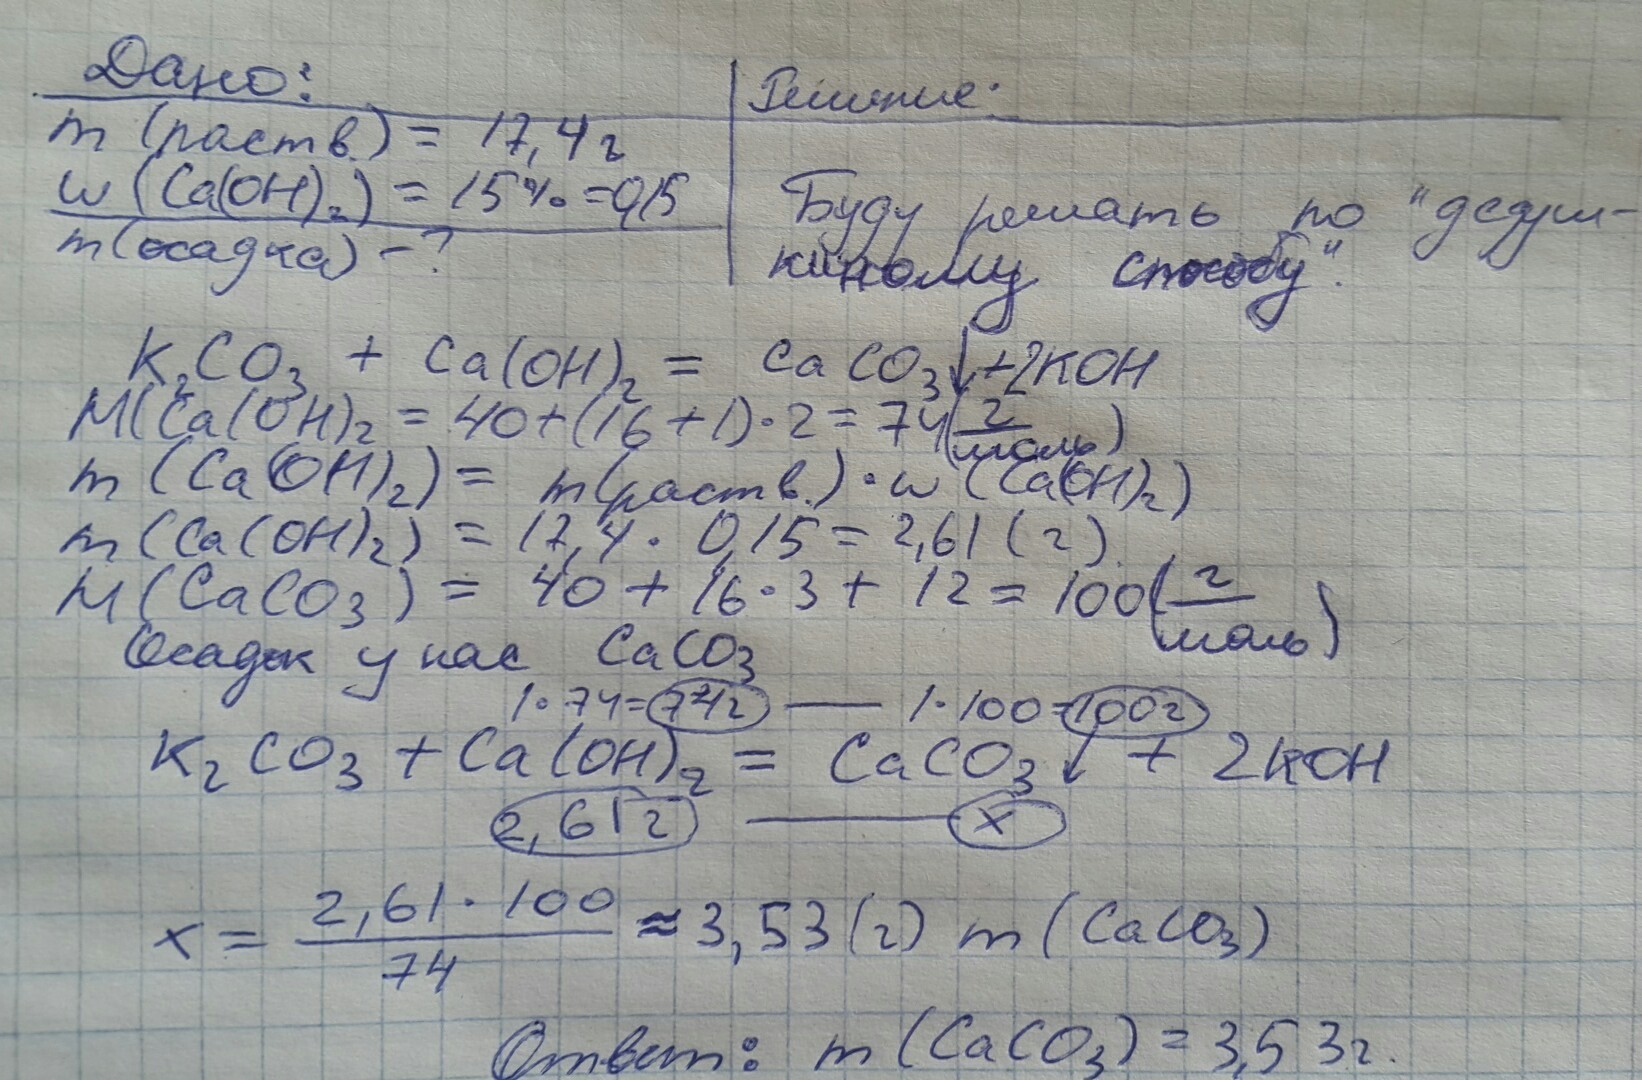 Дано:
Решение:
m (раств.) = 17,4 г
w (Ca(OH)₂) = 15% = 0,15
m (осадка) - ?
Буду решать по "дедуш-
киному способу".
K₂CO₃ + Ca(OH)₂ = CaCO₃↓ + 2KOH
M(Ca(OH)₂ = 40 + (16 + 1) · 2 = 74 (г/моль)
m (Ca(OH)₂) = m(раств.) · w (Ca(OH)₂)
m (Ca(OH)₂) = 17,4 · 0,15 = 2,61 (г)
M (CaCO₃) = 40 + 16 · 3 + 12 = 100 (г/моль)
Осадок у нас CaCO₃
1 · 74 = 74 г — 1 · 100 = 100 г
K₂CO₃ + Ca(OH)₂ = CaCO₃↓ + 2KOH
2,61 г — x
x = 2,61 · 100 / 74 ≈ 3,53 (г) m (CaCO₃)
Ответ: m (CaCO₃) = 3,53 г.